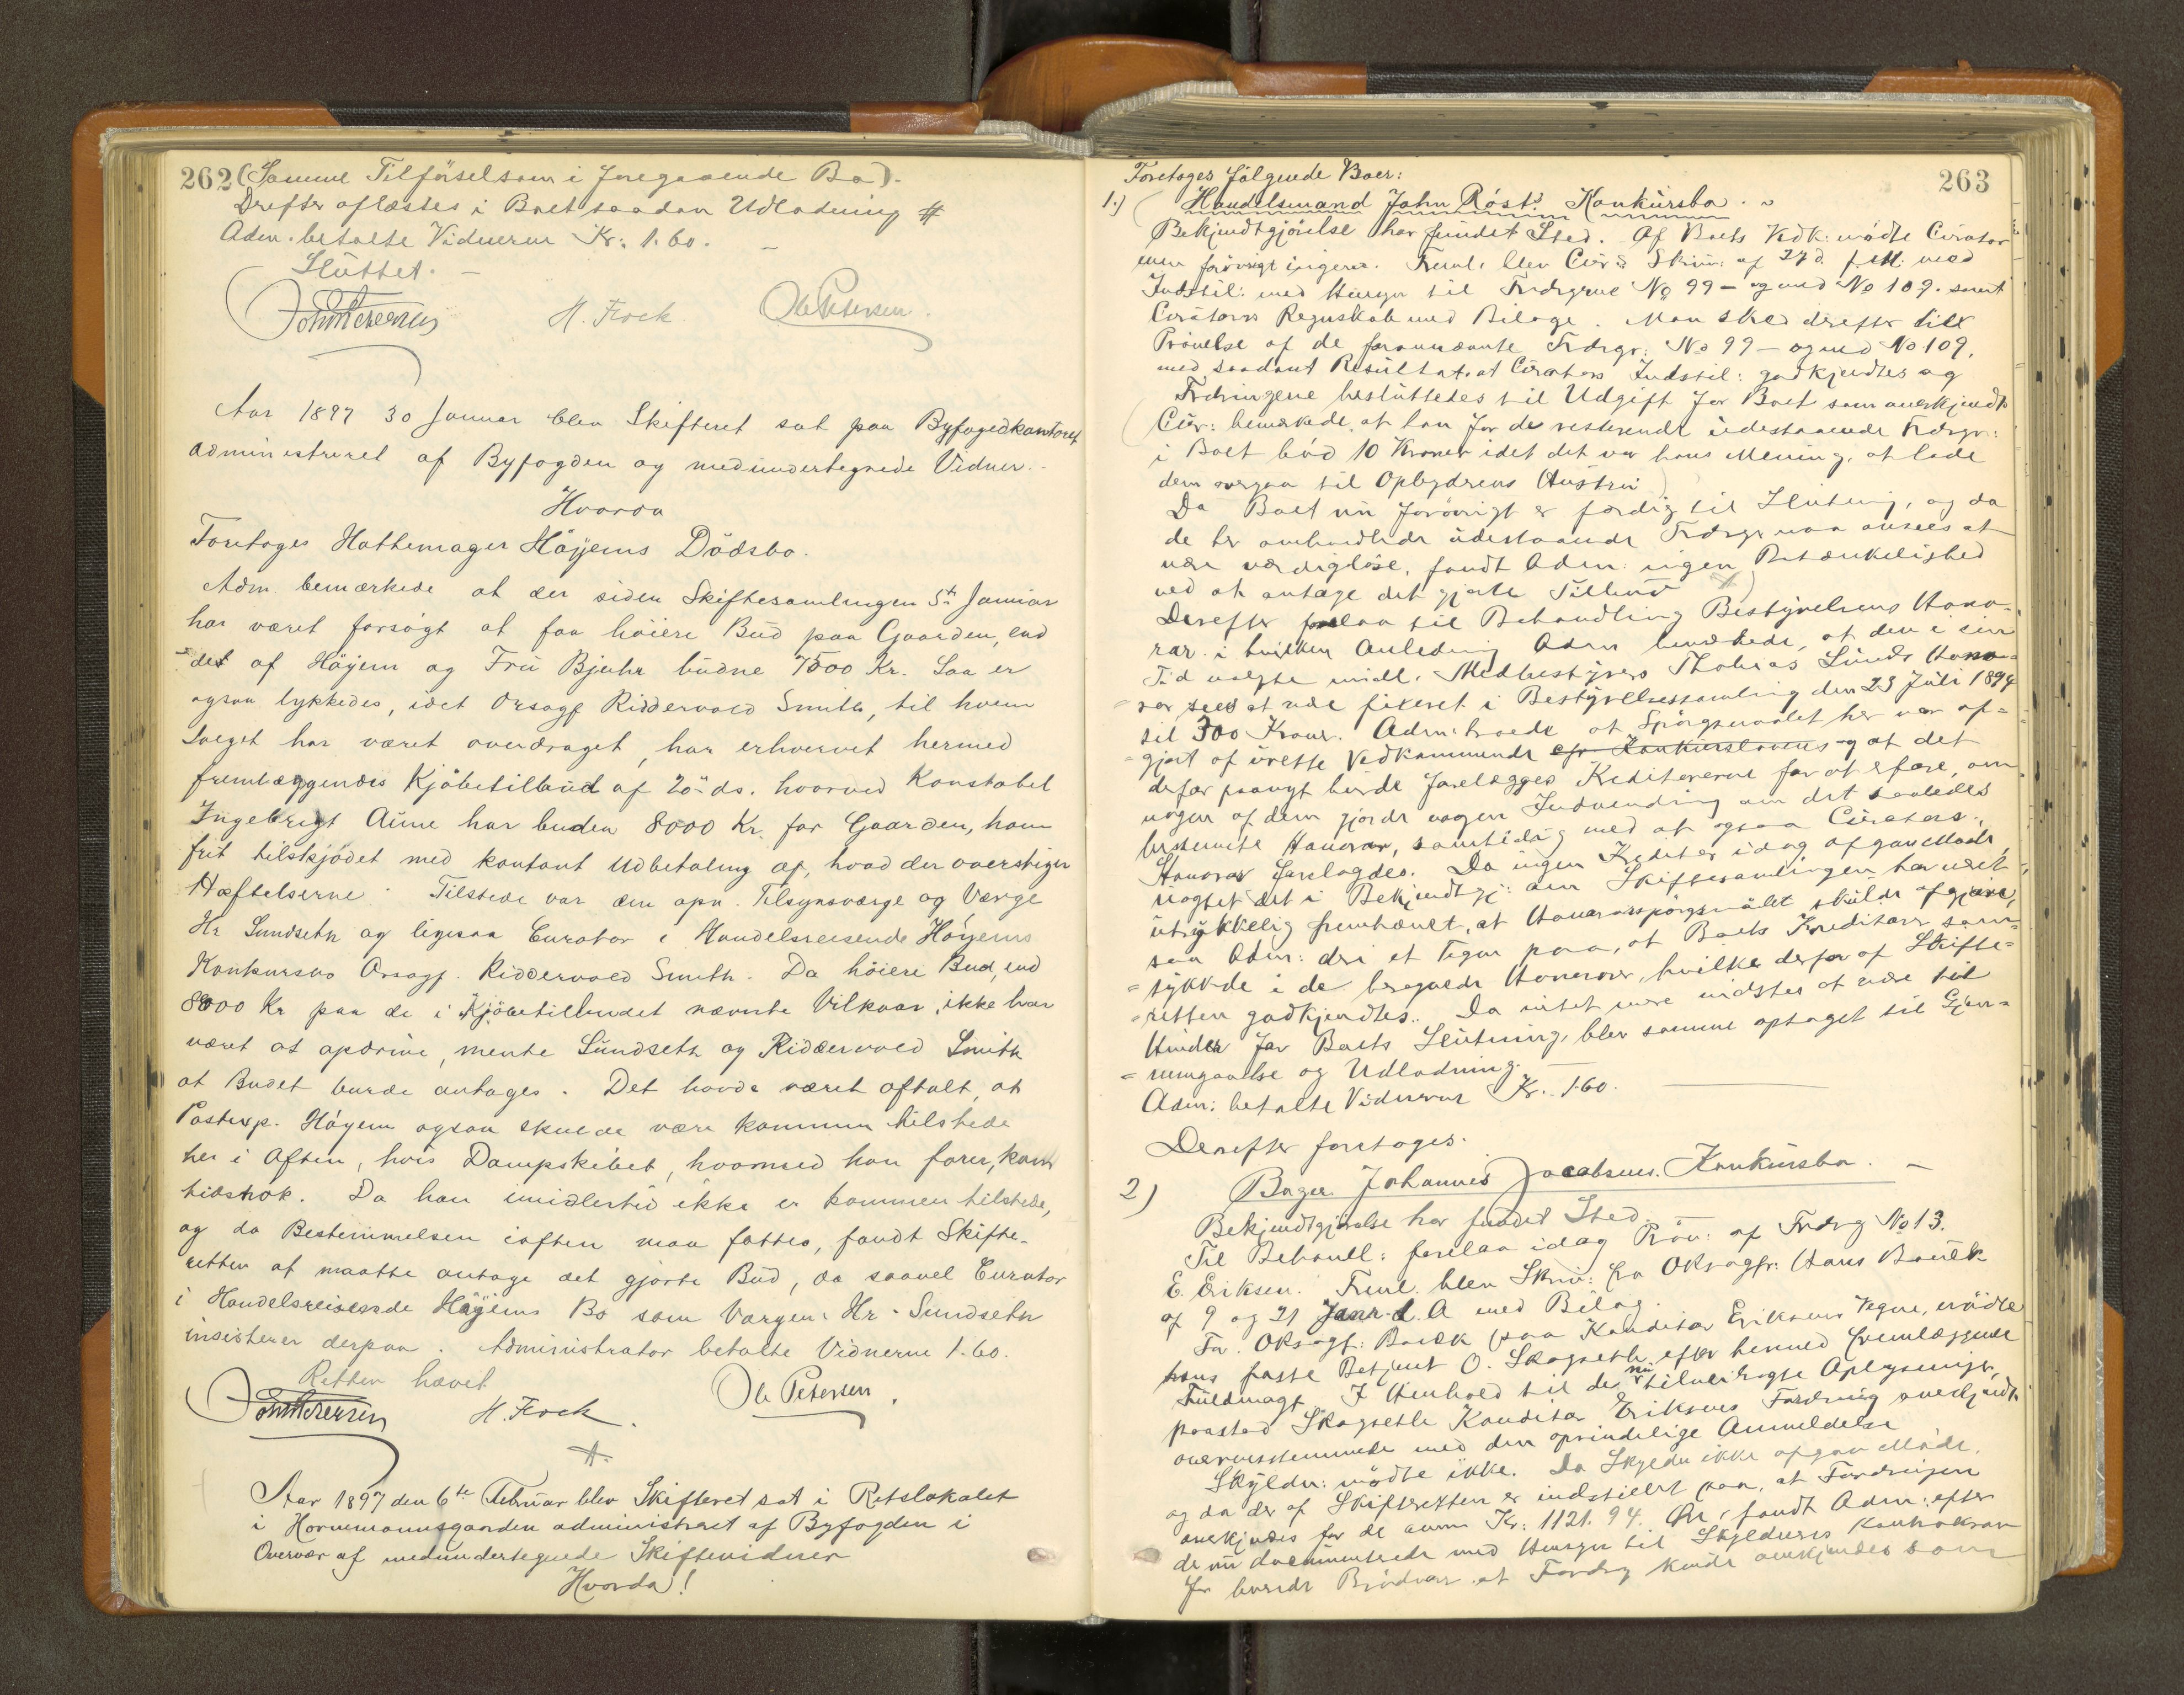 262 (Samme Tilförsel som i foregaaende Bo).
Derefter oplæstes i Boet saadan Udlodning #
Adm. betalte Vidnerne Kr. 1.60. —
Sluttet. —
H. Fock Ole Petersen.
Aar 1897 30 Januar blev Skifteret sat paa Byfogedkontoret
administreret af Byfogden og medundertegnede Vidner. -
Hvorda
Foretoges Hattemager Höyems Dödsbo.
Adm. bemærkede at der siden Skiftesamlingen 5te Januar
har været forsögt at faa höiere Bud paa Gaarden, end
det af Höyem og Fru Bjuhr budne 7500 Kr. Saa er
ogsaa lykkedes, idet Orsagf Riddervold Smith, til hvem
Salget har været overdraget, har erhvervet hermed
fremlæggendes Kjöbetilbud af 20 ds. hvorved Konstabel
Ingebrigt Aune har buden 8000 Kr. for Gaarden, ham
frit tilskjödet med kontant Udbetaling af, hvad der overstiger
Hæftelserne. Tilstede var den opn. Tilsynsværge og Værge
Hr Sundseth og ligesaa Curator i Handelsreisende Höyems
Konkursbo Orsagf. Riddervold Smith. Da höiere Bud, end
8000 Kr paa de i Kjöbetilbudet nævnte Vilkaar, ikke har
været at opdrive, mente Sundseth og Riddervold Smith
at Budet burde antages. Det havde været aftalt, at
Postexp. Höyem ogsaa skulde være kommen tilstede
her i Aften, hvis Dampskibet, hvormed han farer, kom
tidsnok. Da han imidlertid ikke er kommen tilstede,
og da Bestemmelsen iaften maa fattes, fandt Skifte-
retten at maatte antage det gjorte Bud, da saavel Curator
i Handelsreisende Höyems Bo som Værgen Hr. Sundseth
insisterer derpaa. Administrator betalte Vidnerne 1.60.
Retten hævet
H. Fock. Ole Petersen.
Aar 1897 den 6te Februar blev Skifteret sat i Retslokalet
i Hornemannsgaarden administreret af Byfogden i
Overvær af medundertegnede Skiftevidner
Hvorda!
263
Foretoges fölgende Boer:
1.) Handelsmand John Rösts Konkursbo.
Bekjendtgjörelse har fundet Sted. Af Boets Vedk. mödte Curator
men forövrigt ingen. Freml. blev Cur's Skriv. af 27 d. f.M. med
Indstil: med Hensyn til Fordrgrne No 99 - og med No 109. samt
Curators Regnskab med Bilage. Man skred derefter till
Prövelse af de forannævnte Fordrgr: No 99 - og med No 109,
med saadant Resultat, at Curators Indstil: godkjendtes og
Fordringerne besluttedes til Udgift for Boet som anerkjendt
Cur: bemærkede, at han for de resterende udestaaende Fordrgr:
i Boet böd 10 Kroner idet det var hans Mening, at lade
dem overgaa til Opbyderens Hustru
Da Boet nu forövrigt er færdig til Slutning, og da
de her omhandlede udestaaende Fordrgr maa ansees at
være værdiglöse, fandt Adm: ingen Betænkelighed
ved at antage det gjorte Tilbud
Derefter forelaa til Behandling Bestyrelsens Hono-
rar i hvilken Anledning Adm bemærkede, at den i sin
Tid valgte midl. Medbestyrers Thobias Lunds Hono-
rar sees at være fixeret i Bestyrelsessamling den 23 Juli 1894
til 300 Kroner. Adm: troede at Spörgsmaalet her var af-
gjort af urette Vedkommende cfr Konkurslovens og at det
derfor paanyt burde forelægges Kreditorerne for at erfare, om
nogen af dem gjorde nogen Indvending om det saaledes
bestemte Honorar, samtidig med at ogsaa Curators
Honorar forelagdes. Da ingen Kreditor idag afgav Möde,
uagtet det i Bekjendtgj: om Skiftesamlingen har været
udtrykkelig fremhævet, at Honorarspörgsmålet skulde afgjöres,
saa Adm: deri et Tegn paa, at Boets Kreditorer sam-
tykkede i de beregnede Honorarer, hvilke derfor af Skifte-
retten godkjendtes. Da intet mere vidstes at være til
Hinder for Boets Slutning, blev samme optaget til Gjen-
nemgaaelse og Udlodning.
Adm: betalte Vidnerne Kr. 1.60.
Derefter foretoges
2) Bager Johannes Jacobsens Konkursbo. —
Bekjendtgjörelse har fundet Sted.
Til Behandl: forelaa idag Pröv: af Fordrg No 13.
E. Eriksen. Freml. blev Skriv: fra ORsagfr. Hans Bauck
af 9 og 21 Janr d. A med Bilag.
For ORsagf: Bauck paa Konditor Eriksens Vegne, mödte
hans faste Betjent O. Skogseth efter hermed fremlæggende
Fuldmagt. I Henhold til de nu tilveiebragte Oplysninger,
paastod Skogseth Konditor Eriksens Fordring anerkjendt
overensstemmende med den oprindelige Anmeldelse
Skyldn: mödte ikke. Da Skyldn ikke afgav Möde,
og da der af Skifteretten er indstillet paa, at Fordringen
anerkjendes for de anm Kr: 1121.94. Öre, fandt Adm: efter
de nu documenterede med Hensyn til Skyldneres Kontrakran
for leveret Brödvarer at Fordrg kunde anerkjendes som